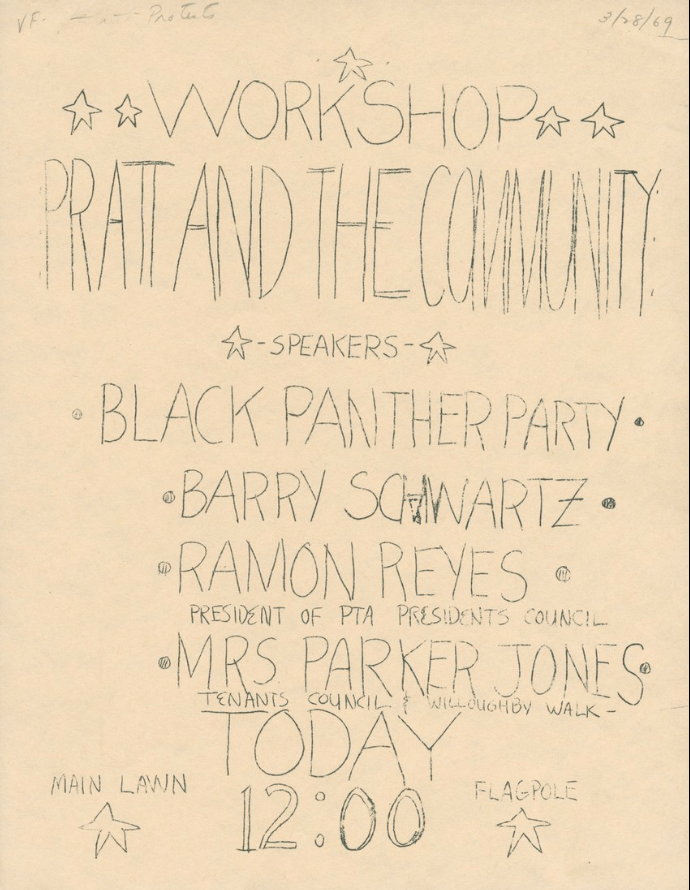 VF- Protests
3/28/69
WORKSHOP
PRATT AND THE COMMUNITY
-SPEAKERS-
BLACK PANTHER PARTY
BARRY SCHWARTZ
RAMON REYES
PRESIDENT OF PTA PRESIDENTS COUNCIL
MRS. PARKER JONES
TENANTS COUNCIL & WILLOUGHBY WALK-
TODAY
MAIN LAWN
FLAGPOLE
12:00